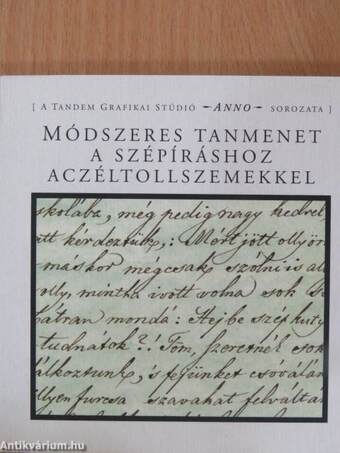 [ A Tandem Grafikai Stúdió –ANNO– sorozata ]
MÓDSZERES TANMENET
A SZÉPÍRÁSHOZ
ACZÉLTOLLSZEMEKKEL
skolába, még pedig nagy kedvel
att kérdeztük,: Mért jött ollyan
máskor mégcsak szólni is
olly, mintha ivott volna sok
bátran mondá: Hej be szép
tudnatok?! Tóm, szeretnél sok
álkoztunk, 's fejünket csóválán
illyen furcsa szavahat felváltá
Antikvárium.hu